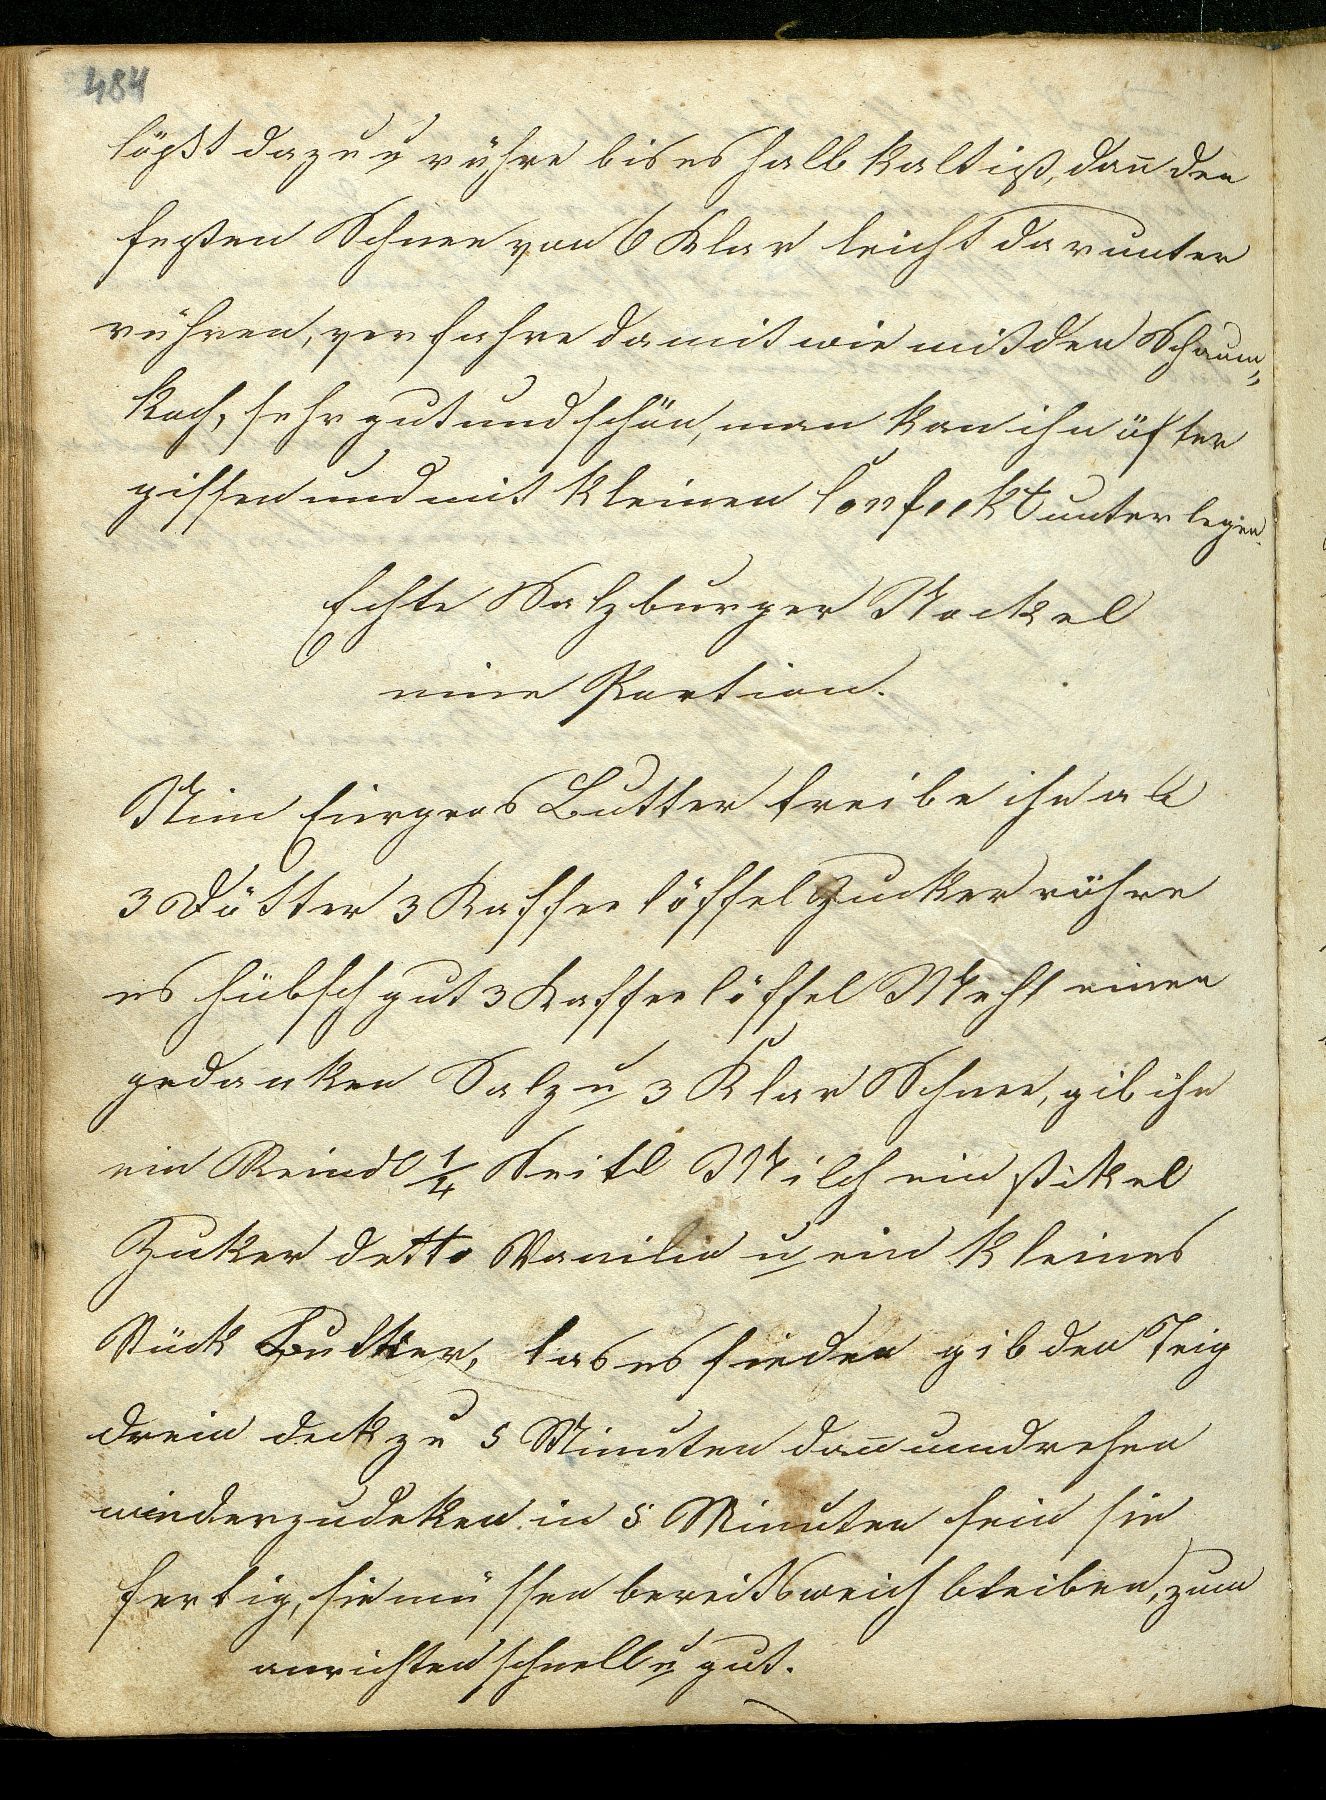 484
lößt dazu u rühre bis es halb kalt ist, dañ den
festen Schnee von 6 Klar leicht darunter
rühren, verfahre damit wie mit den Schaum„
koch, sehr gut und schön, man kan ihn öfter
giessen und mit kleinen Confeckt unterlegen.
Echte Salzburger Nockel
eine Portion.
Nim Eiergros Butter treibe ihn ab
3 Dötter 3 Kaffeelöffel Zucker rühre
es hübsch gut 3 Kaffeelöffel Mehl einen
gedanken Salz u 3 Klar Schnee, gib ihn
ein Reindl 1/4 Seitl Milch ein stikel
Zuker detto Vanilie u ein kleines
Stück Butter, las es sieden gib den Teig
drein deck zu 5 Minuten dañ umdrehen
wieder zudeken in 5 Minuten sein sie
fertig, sie müssen bereits weich bleiben, zum
anrichten schnell u gut.